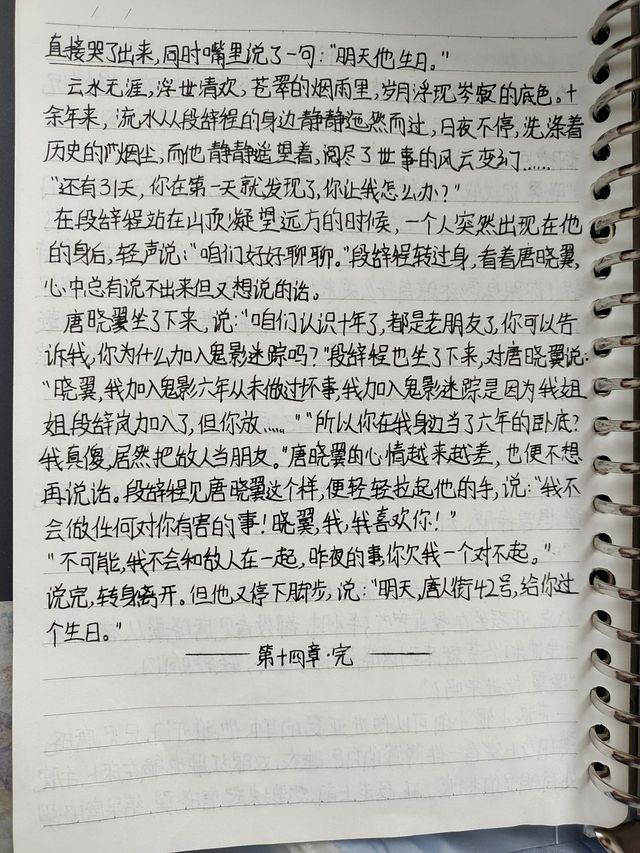 直接哭了出来，同时嘴里说了一句："明天他生日。"
云水无涯，浮世清欢，苍翠的烟雨里，岁月浮现岑寂的底色。十
余年来，流水从段辞程的身边静静迤然而过，日夜不停，洗涤着
历史的烟尘，而他静静遥望着，阅尽了世事的风云变幻……
"还有31天，你在第一天就发现了，你让我怎么办？"
在段辞程站在山顶凝望远方的时候，一个人突然出现在他
的身后，轻声说："咱们好好聊聊。"段辞程转过身，看着唐晓翼，
心中总有说不出来但又想说的话。
唐晓翼坐了下来，说："咱们认识十年了，都是老朋友了，你可以告
诉我，你为什么加入鬼影迷踪吗？"段辞程也坐了下来，对唐晓翼说：
"晓翼，我加入鬼影六年从未做过坏事，我加入鬼影迷踪是因为我姐
姐段辞岚加入了，但你放……""所以你在我身边当了六年的卧底？
我真傻，居然把敌人当朋友。"唐晓翼的心情越来越差，也便不想
再说话。段辞程见唐晓翼这个样，便轻轻拉起他的手，说："我不
会做任何对你有害的事！晓翼，我，我喜欢你！"
"不可能，我不会和敌人在一起，昨夜的事，你欠我一个对不起。"
说完，转身离开。但他又停下脚步，说："明天，唐人街42号，给你过
个生日。"
—— 第十四章·完 ——